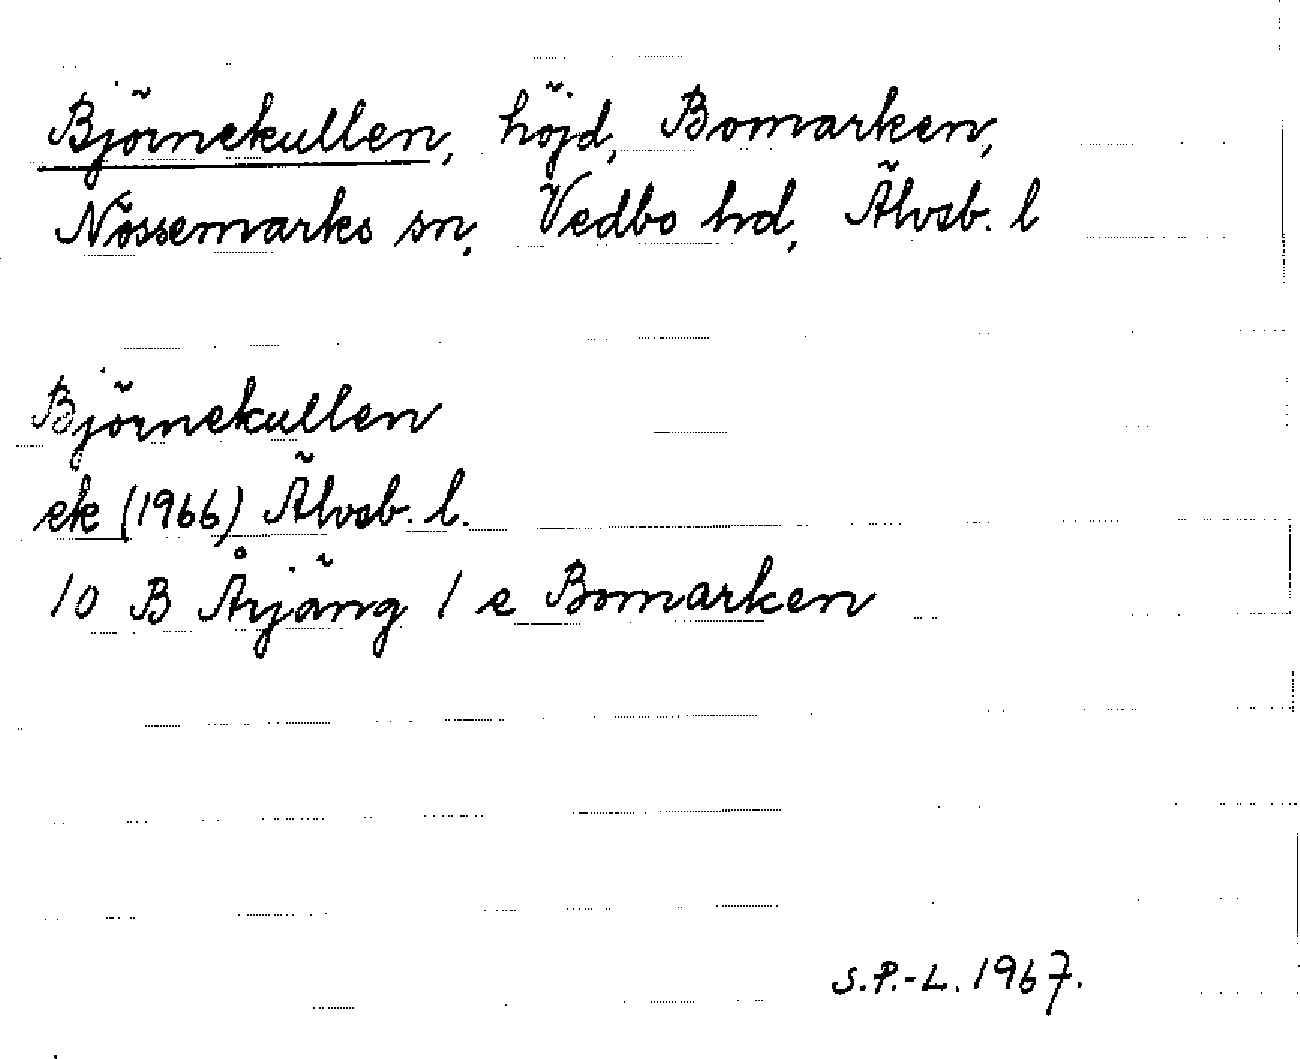 Björnekullen, höjd, Bomarken,
Nössemarks sn, Vedbo hd, Älvsb. l
Björnekullen
ek (1966) Älvsb. l.
10 B Årjäng 1 e Bomarken
S.P.-L. 1967.